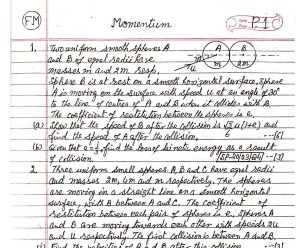 FM
Momentum
P-1
1. Two uniform smooth spheres A
and B of equal radii have
masses m and 2m resp.
A
B
u
m
2m
Sphere B is at rest on a smooth horizontal surface. Sphere
A is moving on the surface with speed u at an angle of 30°
to the line of centres of A and B when it collides with B.
The coefficient of restitution between the spheres is e.
(a) Show that the speed of B after the collision is √3/6 u(1+e) and
find the speed of A after the collision. [5]
(b) Given e = find the loss of kinetic energy as a result
of collision. [3]
2. Three uniform small spheres A, B and C have equal radii
and masses 2m, 4m and m respectively. The spheres
are moving in a straight line on a smooth horizontal
surface, with B between A and C. The coefficient of
restitution between each pair of spheres is e, spheres A
and B are moving towards each other with speeds 2u
and u respectively. The first collision is between A and B.
(i) Find the velocities of A and B after this collision